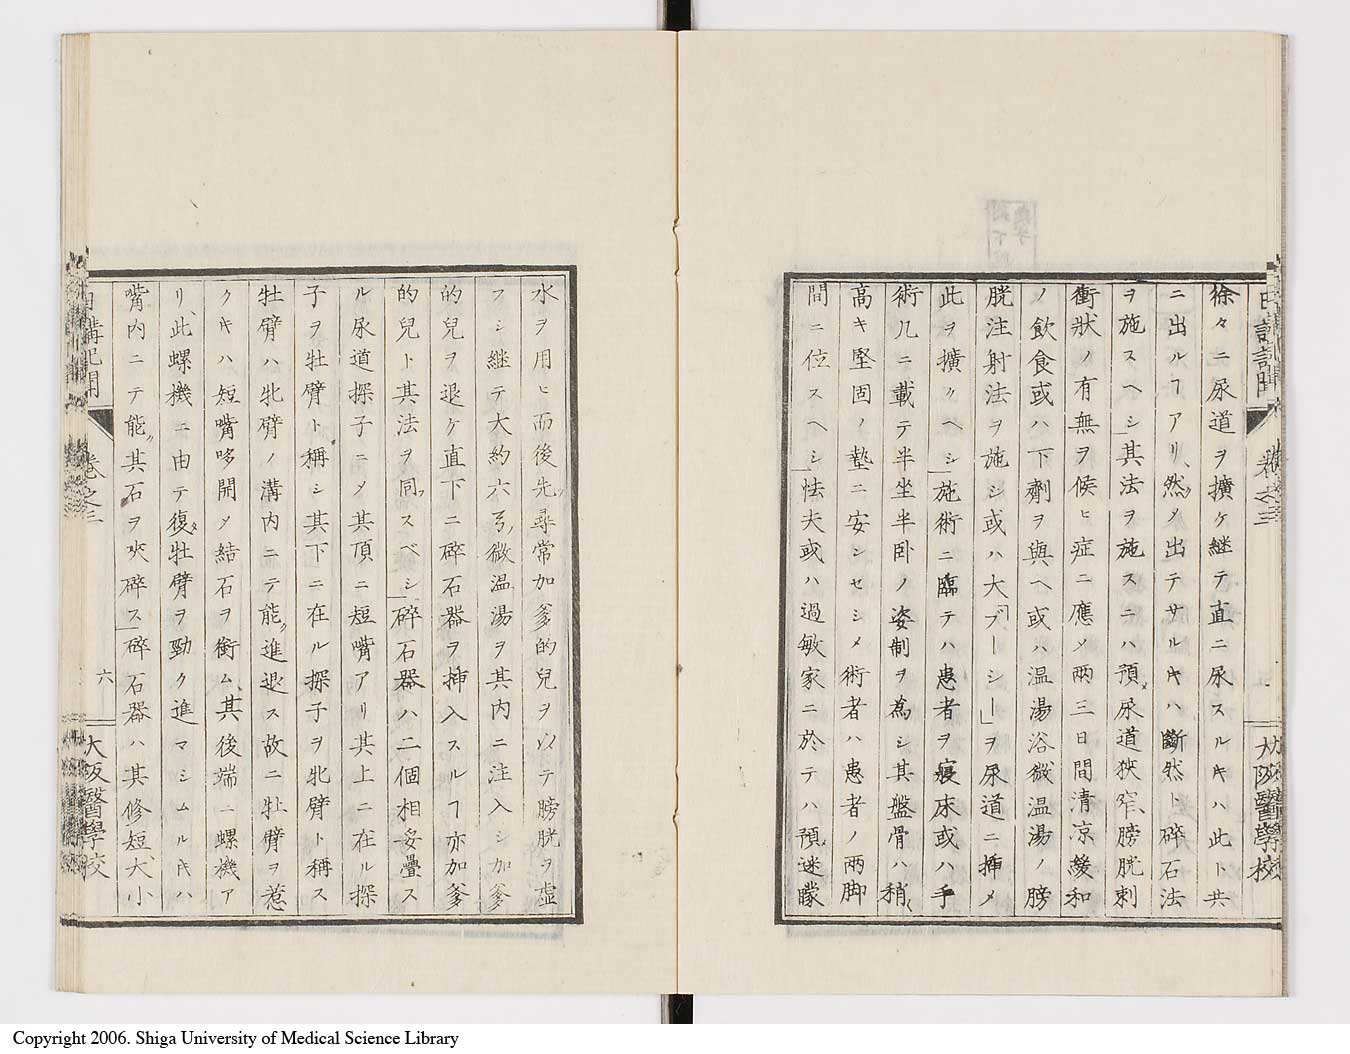 徐々ニ尿道ヲ擴ケ継テ直ニ尿スルキハ此ト共
ニ出ルヿアリ、然メ出テサルキハ斷然ト碎石法
ヲ施スヘシ其法ヲ施スニハ預メ尿道狹窄、膀胱刺
衝狀ノ有無ヲ候ヒ症ニ應メ兩三日間清凉緩和
ノ飲食或ハ下劑ヲ與ヘ或ハ温湯浴微温湯ノ膀
胱注射法ヲ施シ或ハ大「ブーシー」ヲ尿道ニ挿メ
此ヲ擴クヘシ施術ニ臨テハ患者ヲ寢床或ハ手
術几ニ載テ半坐半卧ノ姿制ヲ為シ其盤骨ハ稍
高キ堅固ノ墊ニ安シセシメ術者ハ患者ノ兩脚
間ニ位スヘシ怯夫或ハ過敏家ニ於テハ預メ迷矇
卷之三
大阪醫學校
水ヲ用ヒ而後先ツ尋常加爹的兒ヲ以テ膀胱ヲ虚
フシ継テ大約六弓ノ微温湯ヲ其内ニ注入シ加爹
的兒ヲ退ケ直下ニ碎石器ヲ挿入スルヿ亦加爹
的兒ト其法ヲ同フスベシ碎石器ハ二個相妥疊ス
ル尿道探子ニメ其頂ニ短嘴アリ其上ニ在ル探
子ヲ牡臂ト稱シ其下ニ在ル探子ヲ牝臂ト稱ス
牡臂ハ牝臂ノ溝内ニテ能ク進退ス故ニ牡臂ヲ惹
クキハ短嘴哆開メ結石ヲ衝ム、其後端ニ螺機ア
リ、此螺機ニ由テ復タ牡臂ヲ勁ク進マシムルキハ
嘴内ニテ能ク其石ヲ夾碎ス碎石器ハ其修短大小
日講記聞
卷之三
六
大阪醫學校
Copyright 2006. Shiga University of Medical Science Library